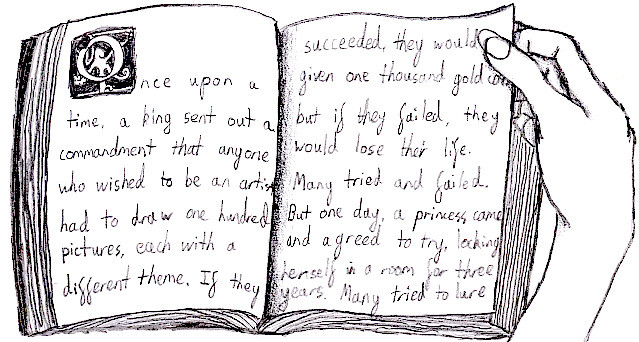 Once upon a
time, a king sent out a
commandment that anyone
who wished to be an artist
had to draw one hundred
pictures, each with a
different theme. If they
succeeded, they would
given one thousand gold coin
but if they failed, they
would lose their life.
Many tried and failed.
But one day, a princess came
and agreed to try, locking
herself in a room for three
years. Many tried to lure